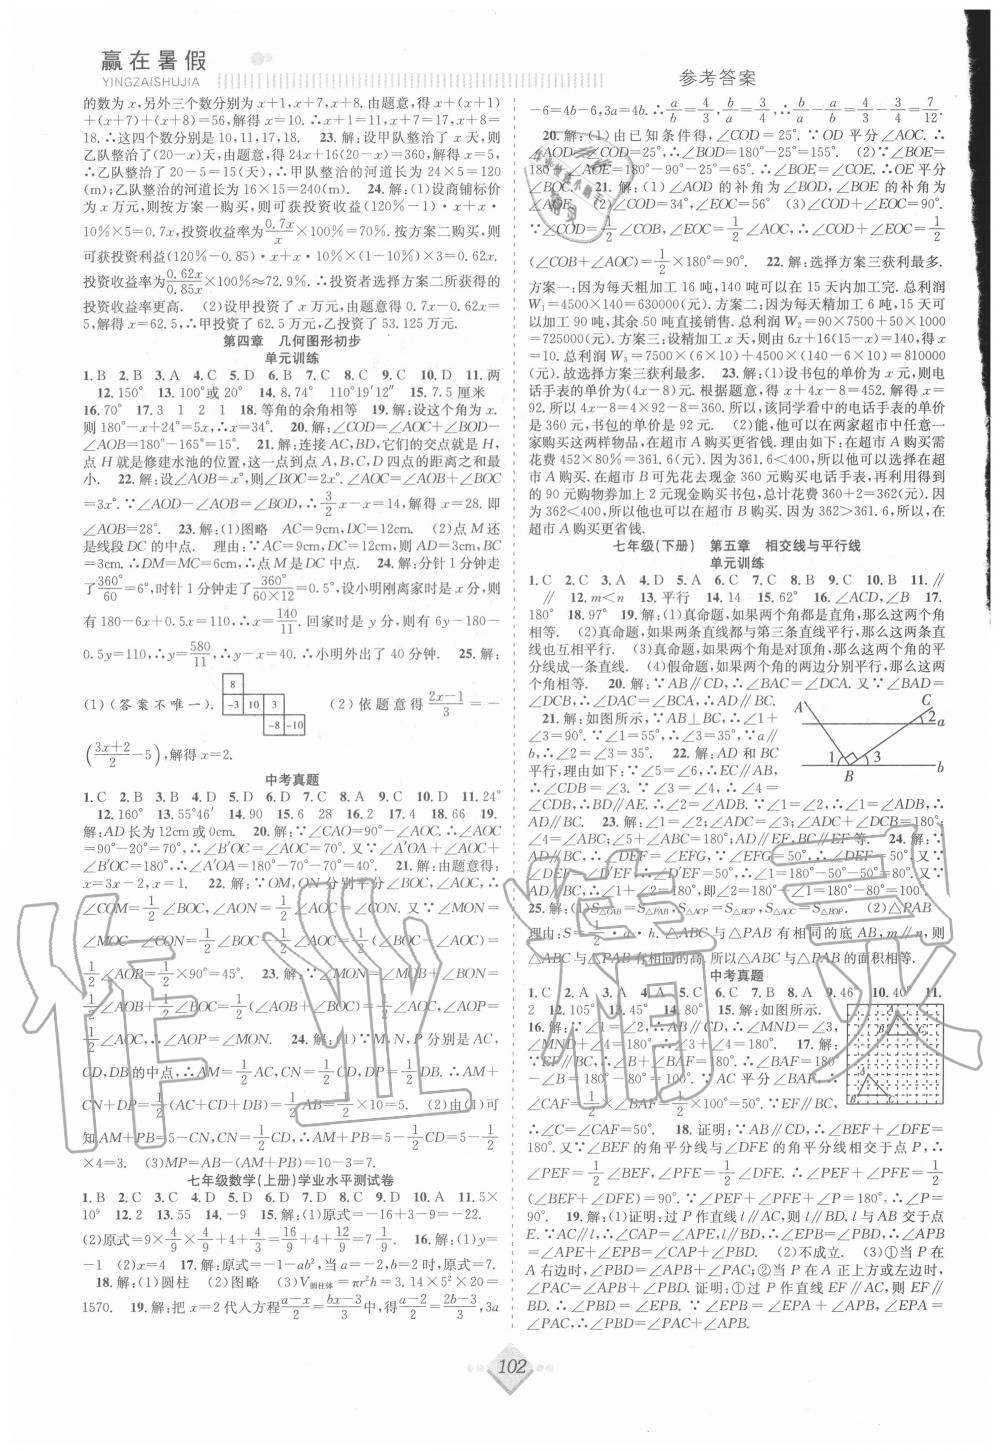 赢在暑假
YINGZAISHUJIA
参考答案
的数为 x,另外三个数分别为 x+1,x+7,x+8.由题意,得 x+(x+1)
+(x+7)+(x+8)=56,解得 x=10.∴x+1=11,x+7=17,x+8=
18.∴这四个数分别是 10,11,17,18. 23.解:设甲队整治了 x 天,则
乙队整治了(20-x)天,由题意,得 24x+16(20-x)=360,解得 x=5,
∴乙队整治了 20-5=15(天),∴甲队整治的河道长为 24×5=120
(m);乙队整治的河道长为 16×15=240(m). 24.解:(1)设商铺标价
为 x 万元,则按方案一购买,则可获投资收益(120%-1)·x+x·
10%×5=0.7x,投资收益率为0.7x/x×100%=70%.按方案二购买,则
可获投资收益(120%-0.85)·x+x·10%×(1-10%)×3=0.62x.
投资收益率为0.62x/0.85x×100%≈72.9%.∴投资者选择方案二所获得的
投资收益率更高. (2)设甲投资了 x 万元,由题意得 0.7x-0.62x=
5,解得 x=62.5,∴甲投资了 62.5 万元,乙投资了 53.125 万元.
第四章 几何图形初步
单元训练
1.B 2.B 3.A 4.C 5.D 6.B 7.C 8.B 9.C 10.C 11.两
12.150° 13.100°或 20° 14.8.74° 110°19′12″ 15.7.5 厘米
16.70° 17.3 1 2 1 18.等角的余角相等 19.解:设这个角为 x.
则 180°-x-24°=5x,∴x=34°. 20.解:∠COD=∠AOC+∠BOD-
∠AOB=180°-165°=15°. 21.解:连接 AC,BD,它们的交点就是 H,
点 H 就是修建水池的位置,这一点到点 A,B,C,D 四点的距离之和最
小. 22.解:设∠AOB=x°,则∠BOC=2x°.∠AOC=∠AOB+∠BOC
=3x°.∵∠AOD-∠AOB=∠BOD,∴3/2x-x=14,解得 x=28.即
∠AOB=28°. 23.解:(1)图略 AC=9cm,DC=12cm. (2)点 M 还
是线段 DC 的中点. 理由:∵AC=9cm,DC=12cm,AM=3cm,MC
=6cm,∴DM=MC=6cm,∴点 M 是 DC 中点. 24.解:分针 1 分钟走
了360°/60=6°,时针 1 分钟走了360°/60×12=0.5°,设小明刚离家时是 x 分,则
有 180-6x+0.5x=110,∴x=140/11.回家时是 y 分,则有 6y-180-
0.5y=110,∴y=580/11,∴小明外出了 40 分钟. 25.解:
(1)(答案不唯一). 8 -3 10 3 -8 -10 (2)依题意得 2x-1/3=-
(3x+2/2-5),解得 x=2.
中考真题
1.C 2.B 3.B 4.A 5.D 6.D 7.C 8.A 9.C 10.D 11.24°
12.160° 13.55° 14.90 15.6 28 16.2 17.4 18.66 19.
解:AD 长为 12cm 或 0cm. 20.解:∵∠CAO=90°-∠AOC.∴∠AOC
=90°-20°=70°.∴∠B′OC=∠AOC=70°.又∵∠A′OA+∠AOC+
∠B′OC=180°,∴∠A′OA=180°-70°-70°=40°. 21.解:由题意得:
x=3x-2,x=1. 22.解:∵OM,ON 分别平分∠BOC,∠AOC,∴
∠COM=1/2∠BOC,∠AON=1/2∠AOC=∠CON.又∵∠MON=
∠MOC-∠CON=1/2∠BOC-1/2∠AOC=1/2(∠BOC-∠AOC)=
1/2∠AOB=1/2×90°=45°. 23.解:∵∠MON=∠MOB+∠NOB=
1/2∠AOB+1/2∠BOC=1/2(∠AOB+∠BOC)=1/2∠AOC,∠AOP=
1/2∠AOC,∴∠AOP=∠MON. 24.解:(1)∵M,N,P 分别是 AC,
CD,DB 的中点,∴AM=1/2AC,CN=1/2CD,DP=1/2DB.∴AM+
CN+DP=1/2(AC+CD+DB)=1/2AB=1/2×10=5. (2)由(1)可
知 AM+PB=5-CN,CN=1/2CD,∴AM+PB=5-1/2CD=5-1/2
×4=3. (3)MP=AB-(AM+PB)=10-3=7.
七年级数学(上册)学业水平测试卷
1.B 2.C 3.C 4.C 5.B 6.D 7.D 8.C 9.D 10.A 11.5×
10⁹ 12.2 13.55 14.-9 15.解:(1)原式=-16+3-9=-22.
(2)原式=9×4/9×4/9+4×4/9×4=144/9+64/9=7 1/9. 16.解:(1)y=
-1 (2)x=4 17.解:原式=-1-ab²,当 a=-2,b=2 时,原式=7.
18.解:(1)圆柱 (2)图略 (3)V圆柱体=πr²h=3.14×5²×20=
1570. 19.解:把 x=2 代入方程a-x/2=bx-3/3中,得a-2/2=2b-3/3,3a
-6=4b-6,3a=4b.∴a/b=4/3,b/a=3/4.∴a/b-b/a=4/3-3/4=7/12.
20.解:(1)由已知条件得,∠COD=25°.∵OD 平分∠AOC.∴
∠AOD=∠COD=25°,∴∠BOD=180°-25°=155°. (2)∵∠BOE=
180°-∠AOE=180°-90°-25°=65°,∴∠BOE=∠COE.∴OE 平分
∠BOC. 21.解:(1)∠AOD 的补角为∠BOD,∠BOE 的补角为
∠AOE (2)∠COD=34°,∠EOC=56° (3)∠COD+∠EOC=90°.
∵∠COD=1/2∠COB,∠EOC=1/2∠AOC,∴∠COD+∠EOC=1/2
(∠COB+∠AOC)=1/2×180°=90°. 22.解:选择方案三获利最多.
方案一:因为每天粗加工 16 吨,140 吨可以在 15 天内加工完.总利润
W₁=4500×140=630000(元).方案二:因为每天精加工 6 吨,15 天可
以加工 90 吨,其余 50 吨直接销售.总利润 W₂=90×7500+50×1000
=725000(元).方案三:设精加工 x 天,则由 6x+16(15-x)=140,得 x
=10.总利润 W₃=7500×(6×10)+4500×(16×5)=810000
(元).故选择方案三获利最多. 23.解:(1)设书包的单价为 x 元,则电
话手表的单价为(4x-8)元.根据题意,得 x+4x-8=452.解得 x=
92.所以 4x-8=4×92-8=360.所以,该同学看中的电话手表的单价
是 360 元,书包的单价是 92 元. (2)能,他可以在两家超市中任意一
家购买这两样物品,在超市 A 购买更省钱.理由如下:在超市 A 购买需
花费 452×80%=361.6(元).因为 361.6<400,所以他可以选择在超
市 A 购买.在超市 B 可先花去现金 360 元购买电话手表,再利用得到
的 90 元购物券加上 2 元现金购买书包,总计花费 360+2=362(元).因
为 362<400,所以他也可以在超市 B 购买.因为 362>361.6,所以,在
超市 A 购买更省钱.
七年级(下册) 第五章 相交线与平行线
单元训练
1.C 2.C 3.A 4.D 5.B 6.C 7.C 8.B 9.C 10.B 11.∥
∥ 12.m<n 13.平行 14.14 15.62° 16.∠ACD,∠B 17.
180° 18.97° 19.解:(1)真命题,如果两个角都是直角,那么这两个角
相等. (2)真命题,如果两条直线都与第三条直线平行,那么这两条直线
也互相平行. (3)真命题,如果两个角是对顶角,那么这两个角的平
分线成一条直线. (4)假命题,如果两个角的两边分别平行,那么这两
个角相等. 20.解:∵AB∥CD,∴∠BAC=∠DCA.又∵∠BAD=
∠DCB,∴∠DAC=∠BCA,∴AD∥BC.
21.解:如图所示,∵AB⊥BC,∴∠1+
∠3=90°.∵∠1=55°,∴∠3=35°.∵a∥
b,∴∠2=∠3=35°. 22.解:AD 和 BC
平行,理由如下:∵∠5=∠6,∴EC∥AB,
∴∠CDB=∠3.∵∠3=∠4,∴∠4=
∠CDB,∴BD∥AE.∴∠2=∠ADB.∵∠1=∠2,∴∠1=∠ADB,∴
AD∥BC. 23.解:∠1=∠2;∠3+∠ADC;∠ADC+∠DCB=180°;
∠4=∠ABC;∠5+∠ABC=180°;AD∥EF,BC∥EF 等. 24.解:∵
AD∥BC,∴∠DEF=∠EFG,∵∠EFG=50°,∴∠DEF=50°.又∵
∠DEF=∠D′EF,∴∠D′EF=50°.∴∠1=180°-50°-50°=80°.又
∵AD∥BC,∴∠1+∠2=180°,即∠2=180°-∠1=180°-80°=100°.
25.解:(1)S△CAB=S△PAB,S△BCP=S△ACP,S△AOC=S△BOP. (2)△PAB
理由:S=1/2·a·h.∵△ABC 与△PAB 有相同的底 AB,m∥n,则
△ABC 与△PAB 有相同的高.所以△ABC 与△PAB 的面积相等.
A C 2 a 1 3 B b
中考真题
1.C 2.A 3.A 4.A 5.C 6.C 7.B 8.A 9.46 10.40° 11.
2 12.105° 13.45° 14.80° 15.解:如图所示.
16.解:∵∠1=∠2,∴AB∥CD,∴∠MND=∠3,
∠MND+∠4=180°,∴∠3+∠4=180°. 17.解:
∵EF∥BC,∴∠B+∠BAF=180°.∴∠BAF=180°
-∠B=180°-80°=100°.∵AC 平分∠BAF,∴
∠CAF=1/2∠BAF=1/2×100°=50°.∵EF∥BC,
∴∠C=∠CAF=50°. 18.证明:∵AB∥CD,∴∠BEF+∠DFE=
180°.又∵∠BEF 的角平分线与∠DFE 的角平分线相交于点 P,∴
∠PEF=1/2∠BEF,∠PFE=1/2∠DFE,∴∠PEF+∠PFE=1/2
(∠BEF+∠DFE)=90°.∵∠PEF+∠PFE+∠P=180°,∴∠P=
90°. 19.解:(1)证明:过 P 作直线 l∥AC,则 l∥BD.l 与 AB 交于点
E.∵AC∥l,∴∠CAP=∠APE,∵l∥BD,∴∠BPE=∠PBD,∴∠APB
=∠APE+∠EPB=∠CAP+∠PBD. (2)不成立. (3)①当 P 在
A 右边时,∠PBD=∠APB+∠PAC;②当 P 在 A 正上方或左边时,
∠PAC=∠APB+∠PBD.证明:①过 P 作直线 EF∥AC,则 EF∥
BD.∴∠PBD=∠EPB.∵∠EPB=∠EPA+∠APB,∠EPA=
∠PAC,∴∠PBD=∠PAC+∠APB.
102